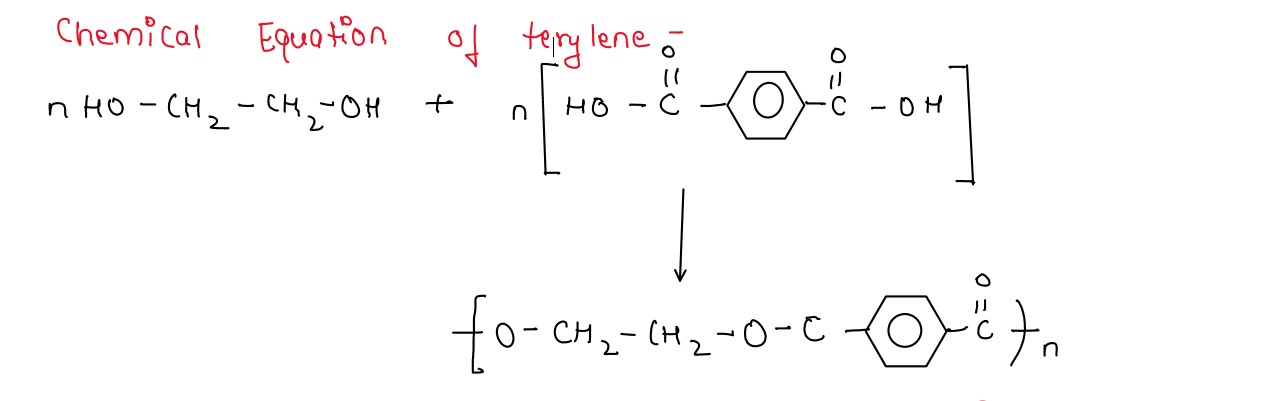 Chemical Equation of terylene -
n HO - CH2 - CH2 - OH + n [ HO - C - C - OH ]
O O
[ O - CH2 - CH2 - O - C - C ) n
O